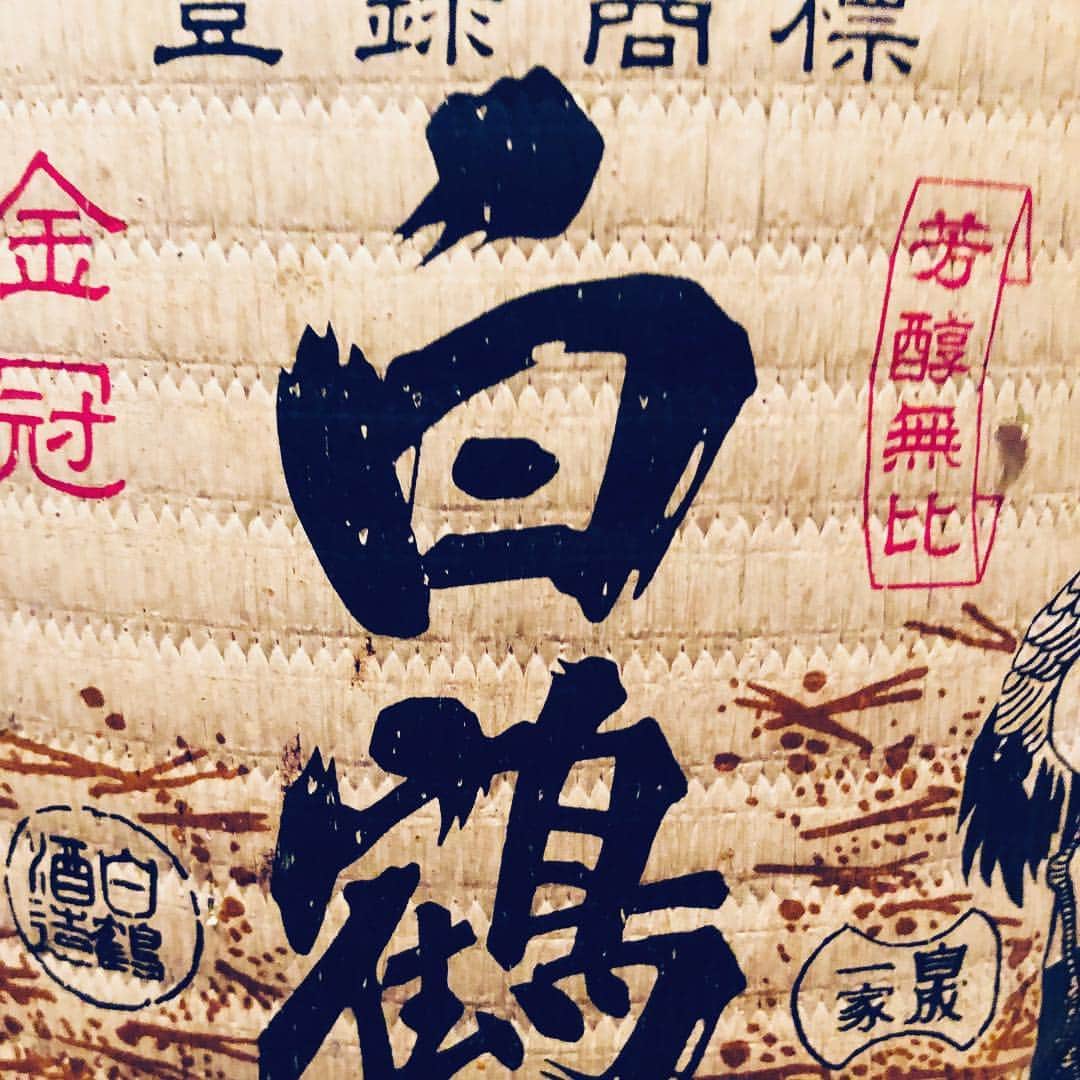 登録商標
芳醇無比
白鶴
金冠
自成
一家
白鶴
酒造